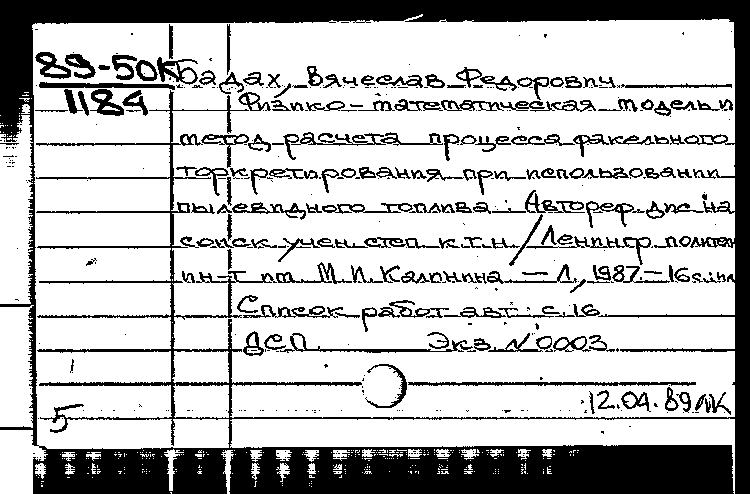 89-50К
1184
Бадах, Вячеслав Федорович
Физико-математическая модель и
метод расчета процесса факельного
торкретирования при использовании
пылевидного топлива: Автореф. дис. на
соиск. учен. степ. к.т.н. / Ленингр. политехн
ин-т им. М.И. Калинина. — Л., 1987. — 16с.: ил
Список работ авт.: с. 16
ДСП. Экз. N 0003
12.04.89
5